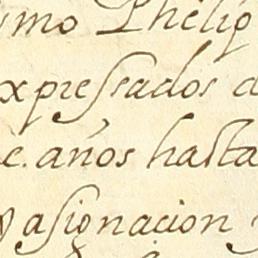 smo Phelip
expressados d
e. años hasta
asignacion